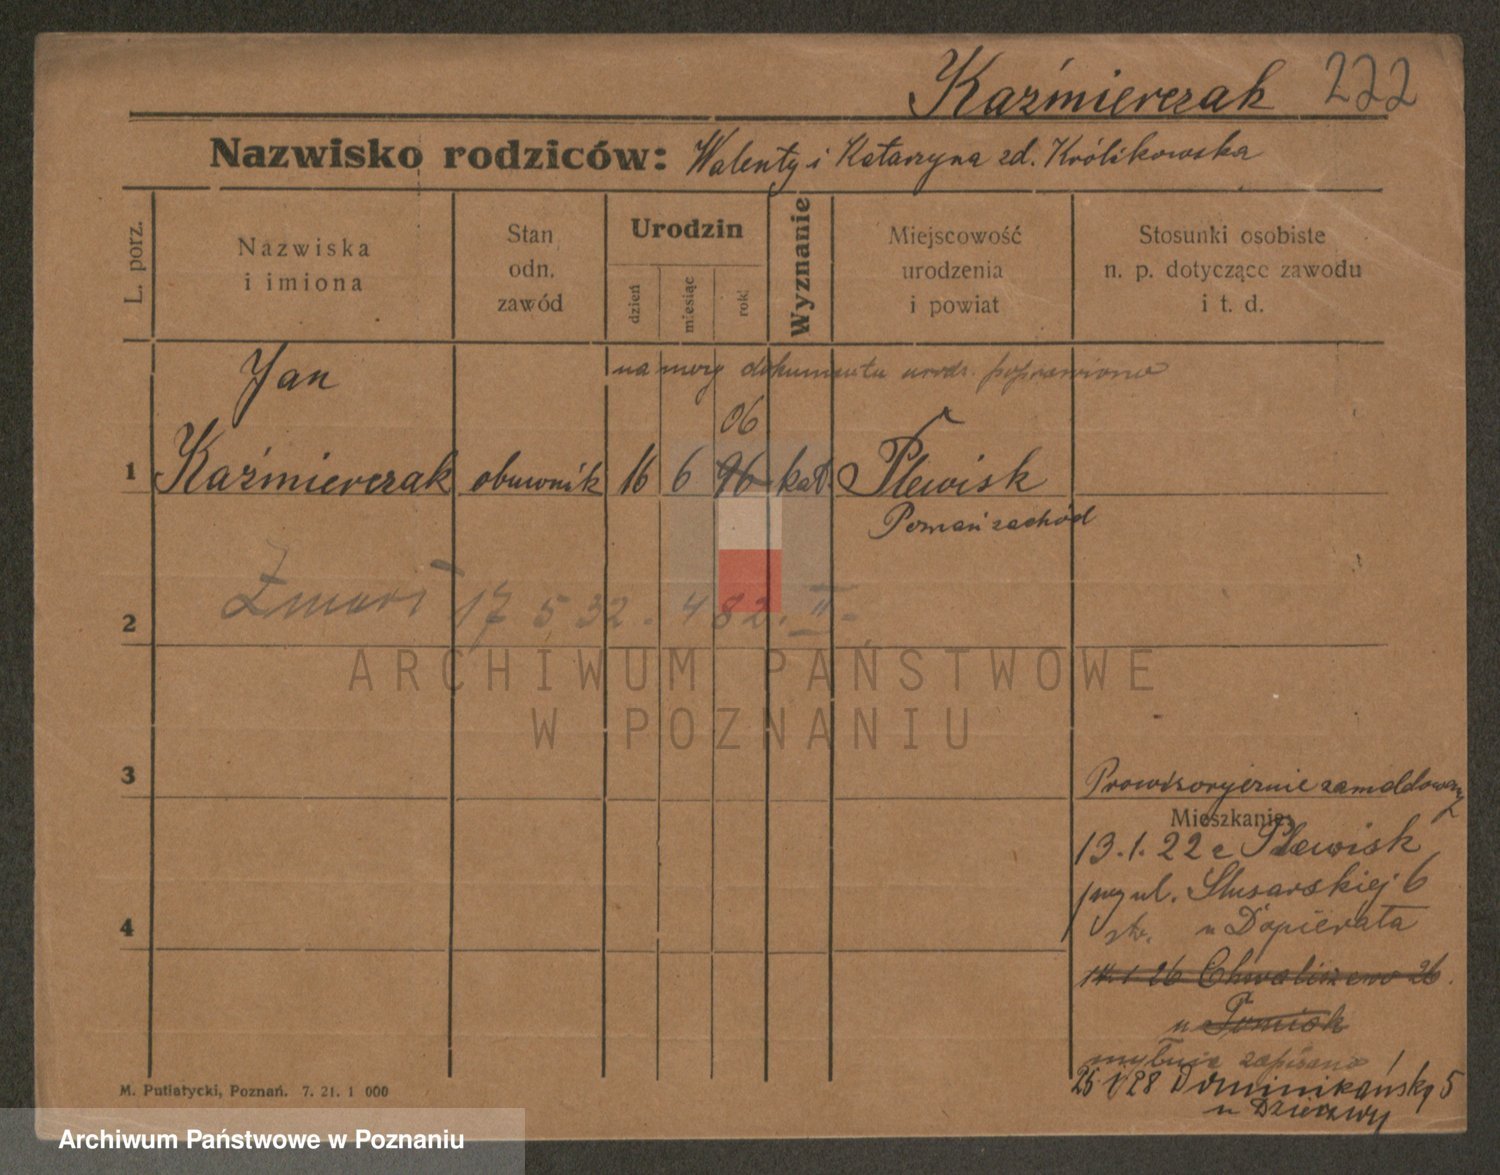 Kaźmierczak 222
Nazwisko rodziców: Walenty i Katarzyna zd. Królikowska
L. porz.
Nazwiska
i imiona
Stan
odn.
zawód
Urodzin
dzień
miesiąc
rok
Wyznanie
Miejscowość
urodzenia
i powiat
Stosunki osobiste
n. p. dotyczące zawodu
i t. d.
na mocy dokumentu urodz. poprawiono
Jan
06
1 Kaźmierczak obuwnik 16 6 96 kat. Plewisk
Poznań zachód
Zmarł 17 5 32. 482. II.
2
ARCHIWUM PAŃSTWOWE
W POZNANIU
3
Prowizorycznie zameldowany
Mieszkanie:
13.1.22 z Plewisk
przy ul. Slusarskiej 6
u Dopierała
4
14.1 26 Chwaliszewo 26.
u Tomiak
mylnie zapisano!
25 V 28 Dominikańska 5
u
M. Putiatycki, Poznań. 7. 21. 1 000
Archiwum Państwowe w Poznaniu